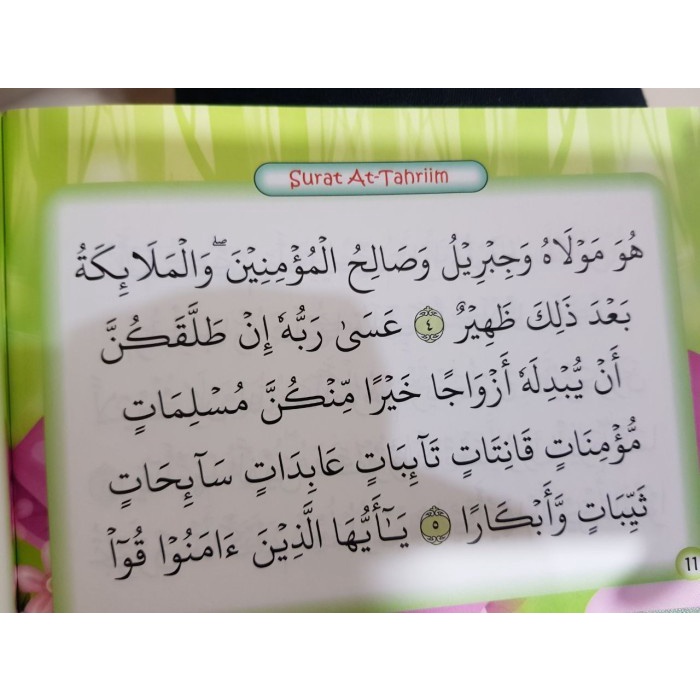 Surat At-Tahriim
هُوَ مَوْلَاهُ وَجِبْرِيْلُ وَصَالِحُ الْمُؤْمِنِيْنَ ۖ وَالْمَلَائِكَةُ
بَعْدَ ذَلِكَ ظَهِيْرٌ ٤ عَسَىٰ رَبُّهُ إِنْ طَلَّقَكُنَّ
أَنْ يُبْدِلَهُ أَزْوَاجًا خَيْرًا مِّنْكُنَّ مُسْلِمَاتٍ
مُّؤْمِنَاتٍ قَانِتَاتٍ تَآئِبَاتٍ عَابِدَاتٍ سَآئِحَاتٍ
ثَيِّبَاتٍ وَّأَبْكَارًا ٥ يَـٰٓأَيُّهَا الَّذِيْنَ ءَامَنُوْا قُوْآ
11